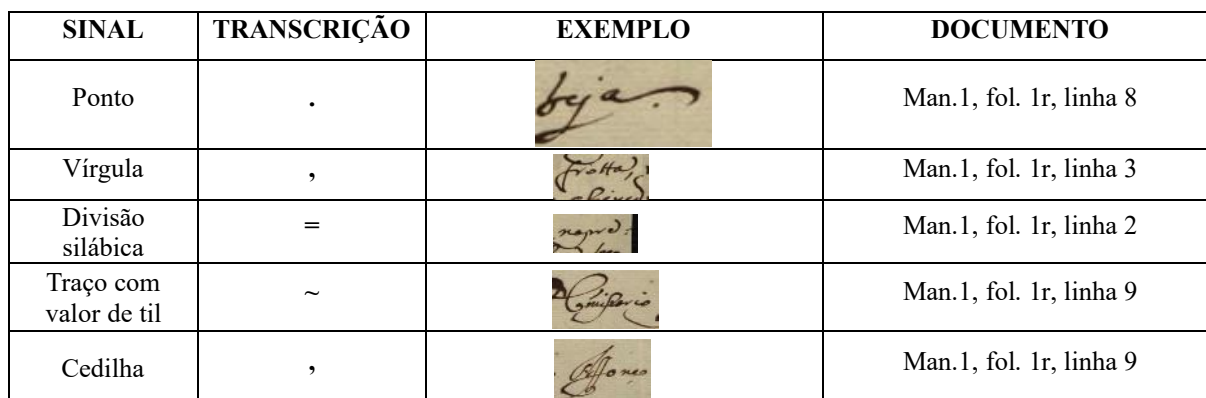 SINAL TRANSCRIÇÃO EXEMPLO DOCUMENTO
Ponto . beja. Man.1, fol. 1r, linha 8
Vírgula , frotta, Man.1, fol. 1r, linha 3
Divisão
silábica = Man.1, fol. 1r, linha 2
Traço com
valor de til ~ Man.1, fol. 1r, linha 9
Cedilha , Man.1, fol. 1r, linha 9